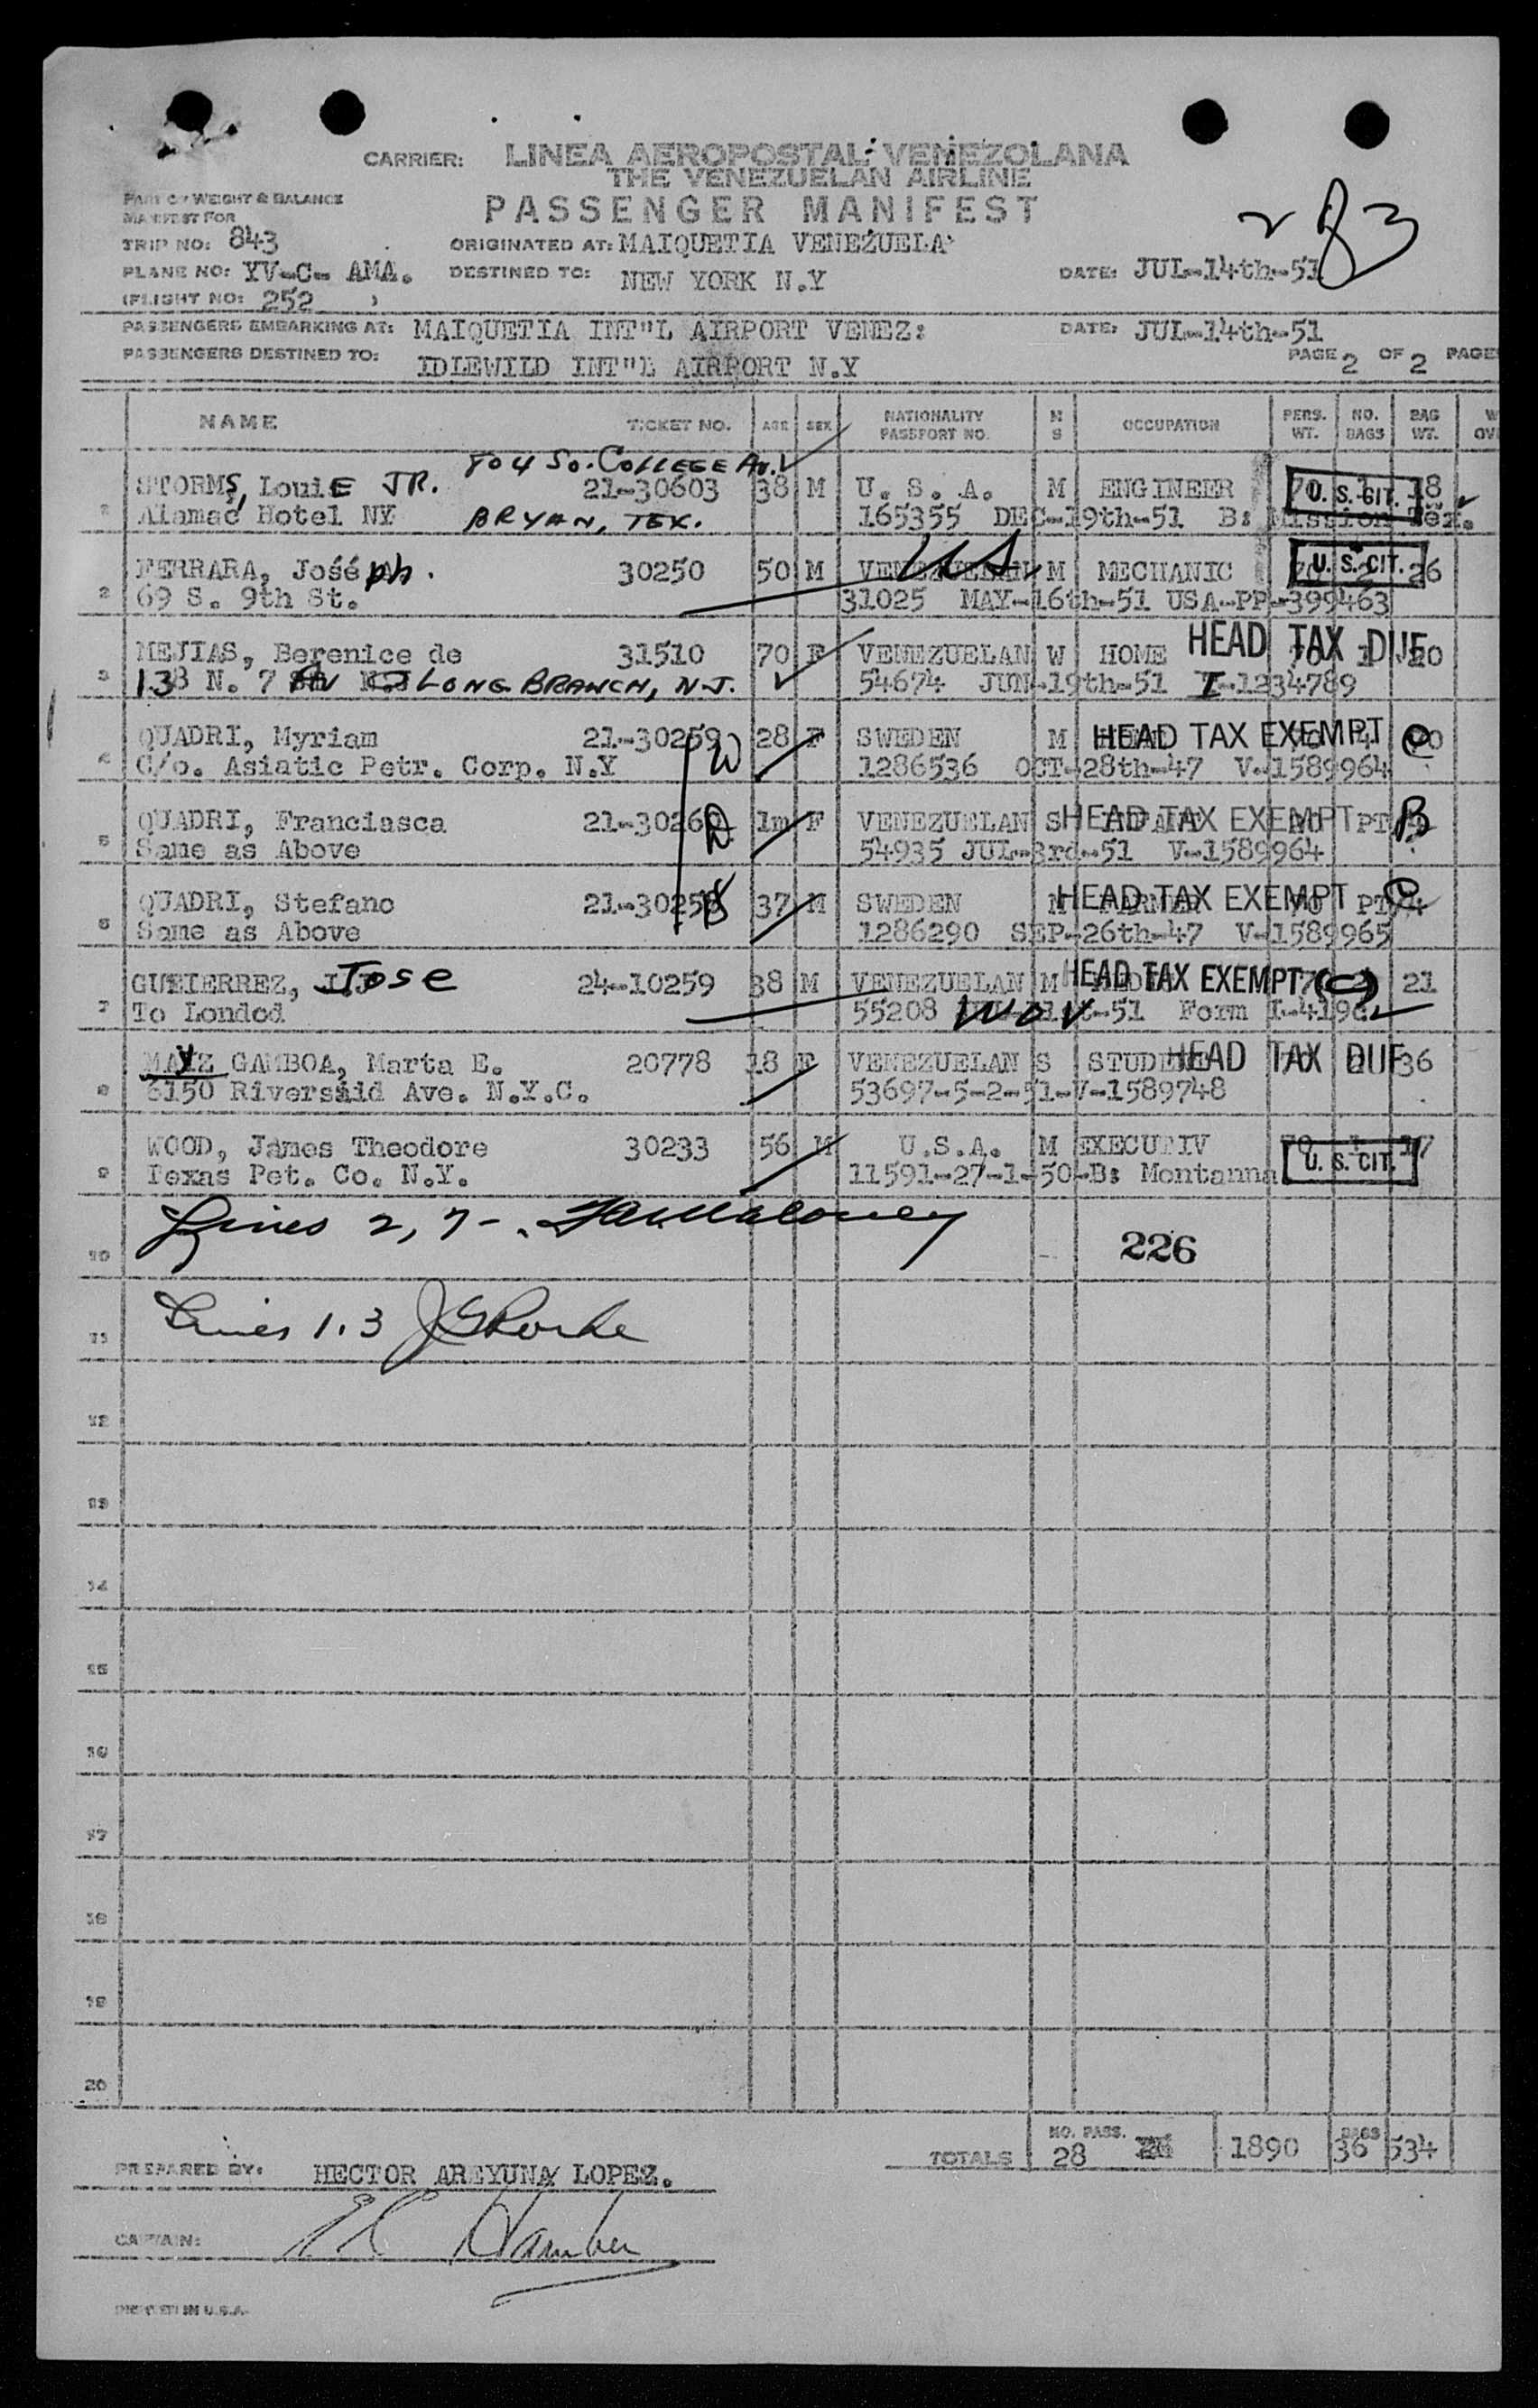 CARRIER: LINEA AEROPOSTAL VENEZOLANA
THE VENEZUELAN AIRLINE
PASSENGER MANIFEST
2 83
PART OF WEIGHT & BALANCE
MANIFEST FOR
TRIP NO: 843 ORIGINATED AT: MAIQUETIA VENEZUELA
PLANE NO: YV-C- AMA. DESTINED TO: NEW YORK N.Y DATE: JUL-14th-51
(FLIGHT NO: 252 )
PASSENGERS EMBARKING AT: MAIQUETIA INT"L AIRPORT VENEZ: DATE: JUL-14th-51
PASSENGERS DESTINED TO: IDLEWILD INT"L AIRPORT N.Y PAGE 2 OF 2 PAGES
NAME TICKET NO. AGE SEX NATIONALITY PASSPORT NO. M S OCCUPATION PERS. WT. NO. BAGS BAG WT. W OV
804 So. COLLEGE Av.
1 STORMS, LouiE JR. 21-30603 38 M U. S. A. M ENGINEER 70 1 18 U. S. CIT.
Alamac Hotel NY BRYAN, TEX. 165355 DEC-19th-51 B: Mission Tex.
2 FERRARA, José ph. 30250 50 M VENEZUELAN US M MECHANIC 70 2 26 U. S. CIT.
69 S. 9th St. 31025 MAY-16th-51 USA-PP-399463
3 MEJIAS, Berenice de 31510 70 F VENEZUELAN W HOME HEAD TAX DUE 70 1 20
138 N. 7 Av LONG BRANCH, N.J. 54674 JUN-19th-51 I-1234789
4 QUADRI, Myriam 21-30259 W 28 F SWEDEN M HEAD TAX EXEMPT C
C/o. Asiatic Petr. Corp. N.Y 1286536 OCT-28th-47 V-1589964
5 QUADRI, Franciasca 21-30260 D 1m F VENEZUELAN S HEAD TAX EXEMPT PT B
Same as Above 54935 JUL-3rd-51 V-1589964
6 QUADRI, Stefano 21-30258 37 M SWEDEN M HEAD TAX EXEMPT PT
Same as Above 1286290 SEP-26th-47 V-1589965
7 GUTIERREZ, Jose 24-10259 38 M VENEZUELAN M HEAD TAX EXEMPT (C) 21
To Londod 55208 WOV -51 Form I-419
8 MAYZ GAMBOA, Marta E. 20778 18 F VENEZUELAN S STUDENT HEAD TAX DUE 36
6150 Riversaid Ave. N.Y.C. 53697-5-2-51-V-1589748
9 WOOD, James Theodore 30233 56 M U.S.A. M EXECUTIV 70 1 17 U. S. CIT.
Texas Pet. Co. N.Y. 11591-27-1-50-B: Montanna
10 Lines 2, 7 - Maloney 226
11 Lines 1.3 JGRorke
12
13
14
15
16
17
18
19
20
TOTALS NO. PASS. 28 1890 BAGS 36 534
PREPARED BY: HECTOR AREYUNA LOPEZ.
CAPTAIN:
PRINTED IN U.S.A.